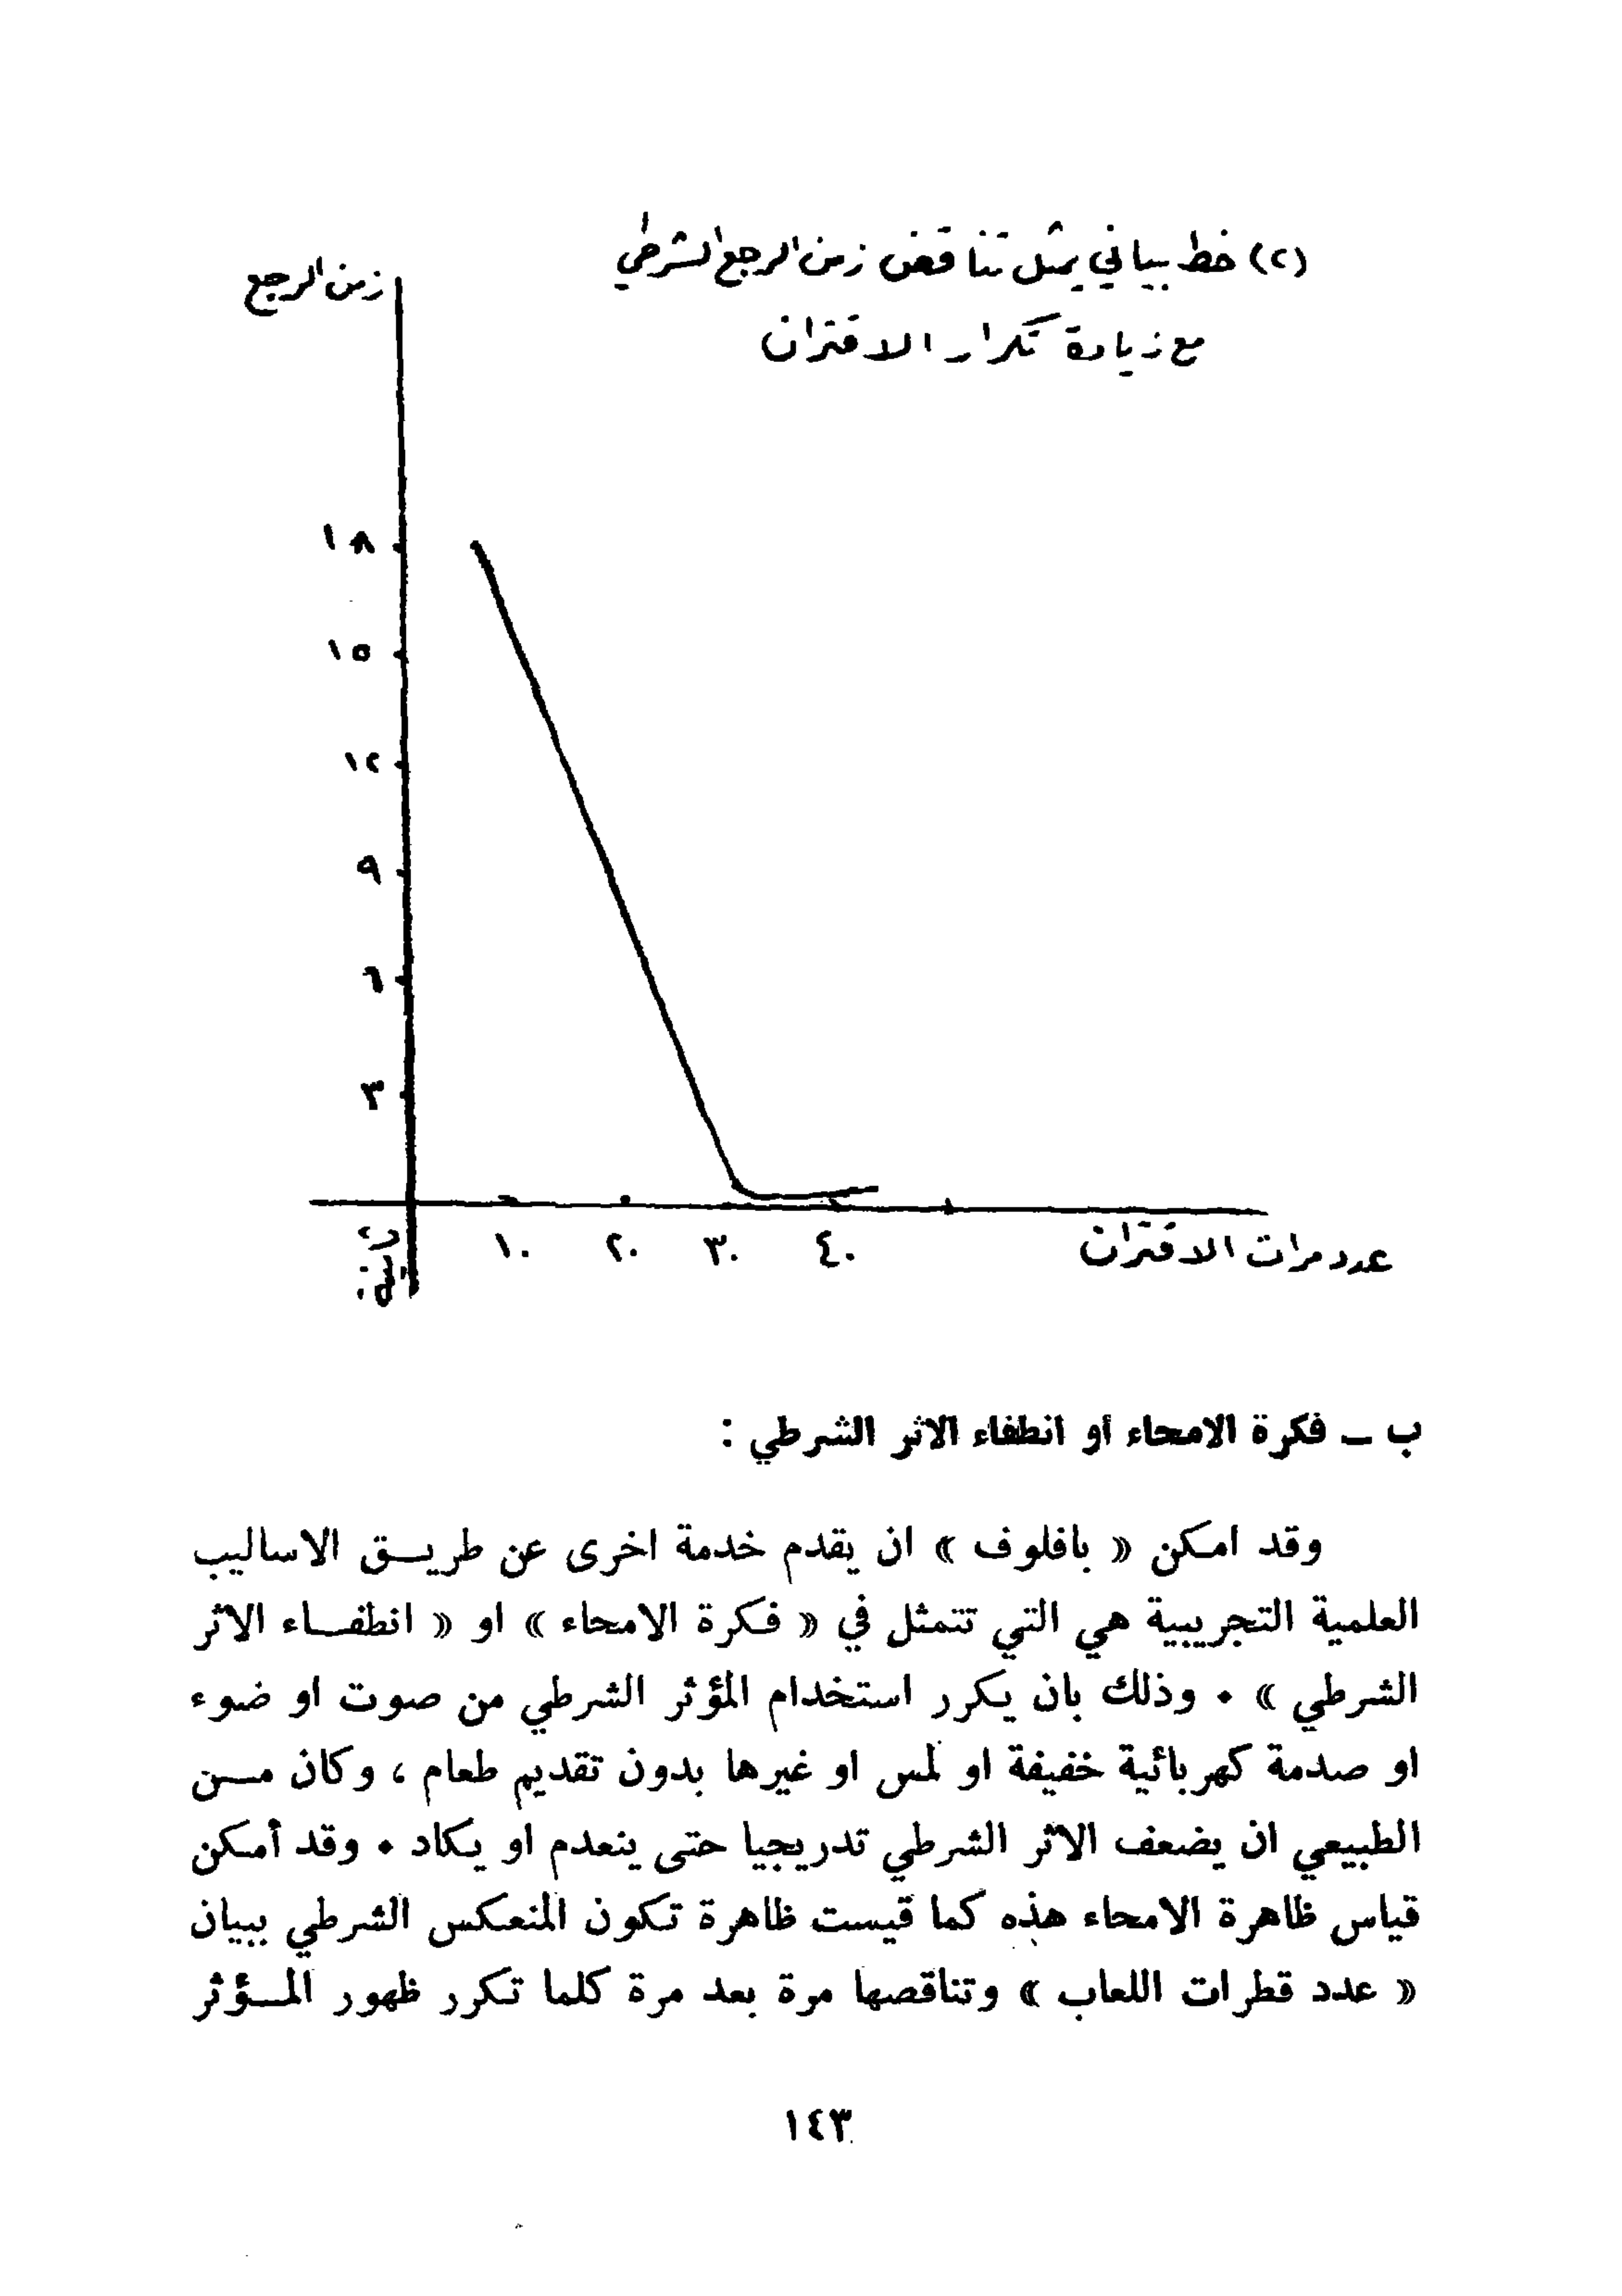 (٢) خط بياني يمثل تناقص زمن الرجع الشرطي
مع زيادة تكرار الاقتران
زمن الرجع
١٨
١٥
١٢
٩
٦
٣
١٠ ٢٠ ٣٠ ٤٠
عدد مرات الاقتران
ب ـ فكرة الامحاء او انطفاء الاثر الشرطي :
وقد امكن « بافلوف » ان يقدم خدمة اخرى عن طريـــق الاساليب
العلمية التجريبية هي التي تتمثل في « فكرة الامحاء » او « انطفـــاء الاثر
الشرطي » ٠ وذلك بان يكرر استخدام المؤثر الشرطي من صوت او ضوء
او صدمة كهربائية خفيفة او لمس او غيرها بدون تقديم طعام ، وكان مـــن
الطبيعي ان يضعف الاثر الشرطي تدريجيا حتى ينعدم او يكاد ٠ وقد أمكن
قياس ظاهرة الامحاء هذه كما قيست ظاهرة تكون المنعكس الشرطي ببيان
« عدد قطرات اللعاب » وتناقصها مرة بعد مرة كلما تكرر ظهور المـــؤثر
١٤٣